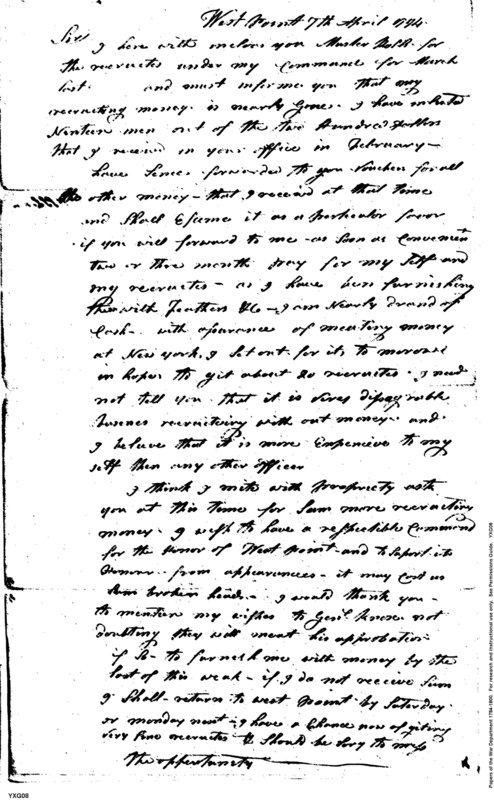 West Point 7th April 1794.
Sir
I here with inclose you Muster Rolls for
the recruits under my Command for March
last. and must informe you that my
recruiting money is nearly Gone. I have inlisted
Ninteen men out of the two Hundred Dollars
that I receivd in your office in February —
have Sence forwarded to you Vouchers for all
the other money — that I received at that time
and Shall Esteme it as a perticular favor
if you will forward to me as soon as Convenient
two or three month pay for my Self and
my recruites — as I have ben furnishing
them with Feathers &c — I am Nearly drand of
Cash — with aparance of meating money
at New York, I Set out for it to morow
in hopes to git about 20 recruites. I need
not tell you that it is disagreable
buness recruiteing with out money. and
I beleave that it is more Expencive to my
self then any other officer
I think I mite with propriety ask
you at this time for Sum more recruiting
money. I wish to have a respectible Command
for the Honor of West Point — and to Suport its
from appearances — it may Cost us
Sum broken heads. I would thank you —
to mention my wishes to Genl. Knox not
doubting they will meat his approbation
if So — to furnesh me with money by the
last of this weak — if I do not receive Sum
I Shall return to west Point by Saturday
or monday next — I have a Chance now of giting
very fine recruites & Should be Sory to miss
the oppertunety
YXG08
Papers of the War Department 1784-1800. For research and instructional use only. See Permissions Guide. YXG08